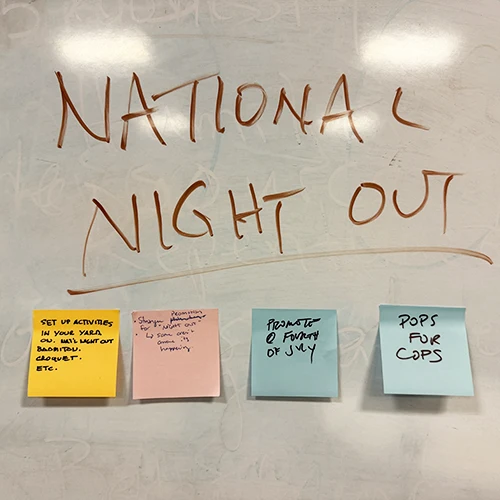 NATIONAL
NIGHT OUT
SET UP ACTIVITIES
IN YOUR YARD
ON NAT'L NIGHT OUT
BADMITON.
CROQUET.
ETC.
• Stronger Promotion
for "Night out"
↳ Some aren't
aware it's
happening
PROMOTE
@ FOURTH
OF JULY
POPS
FOR
COPS